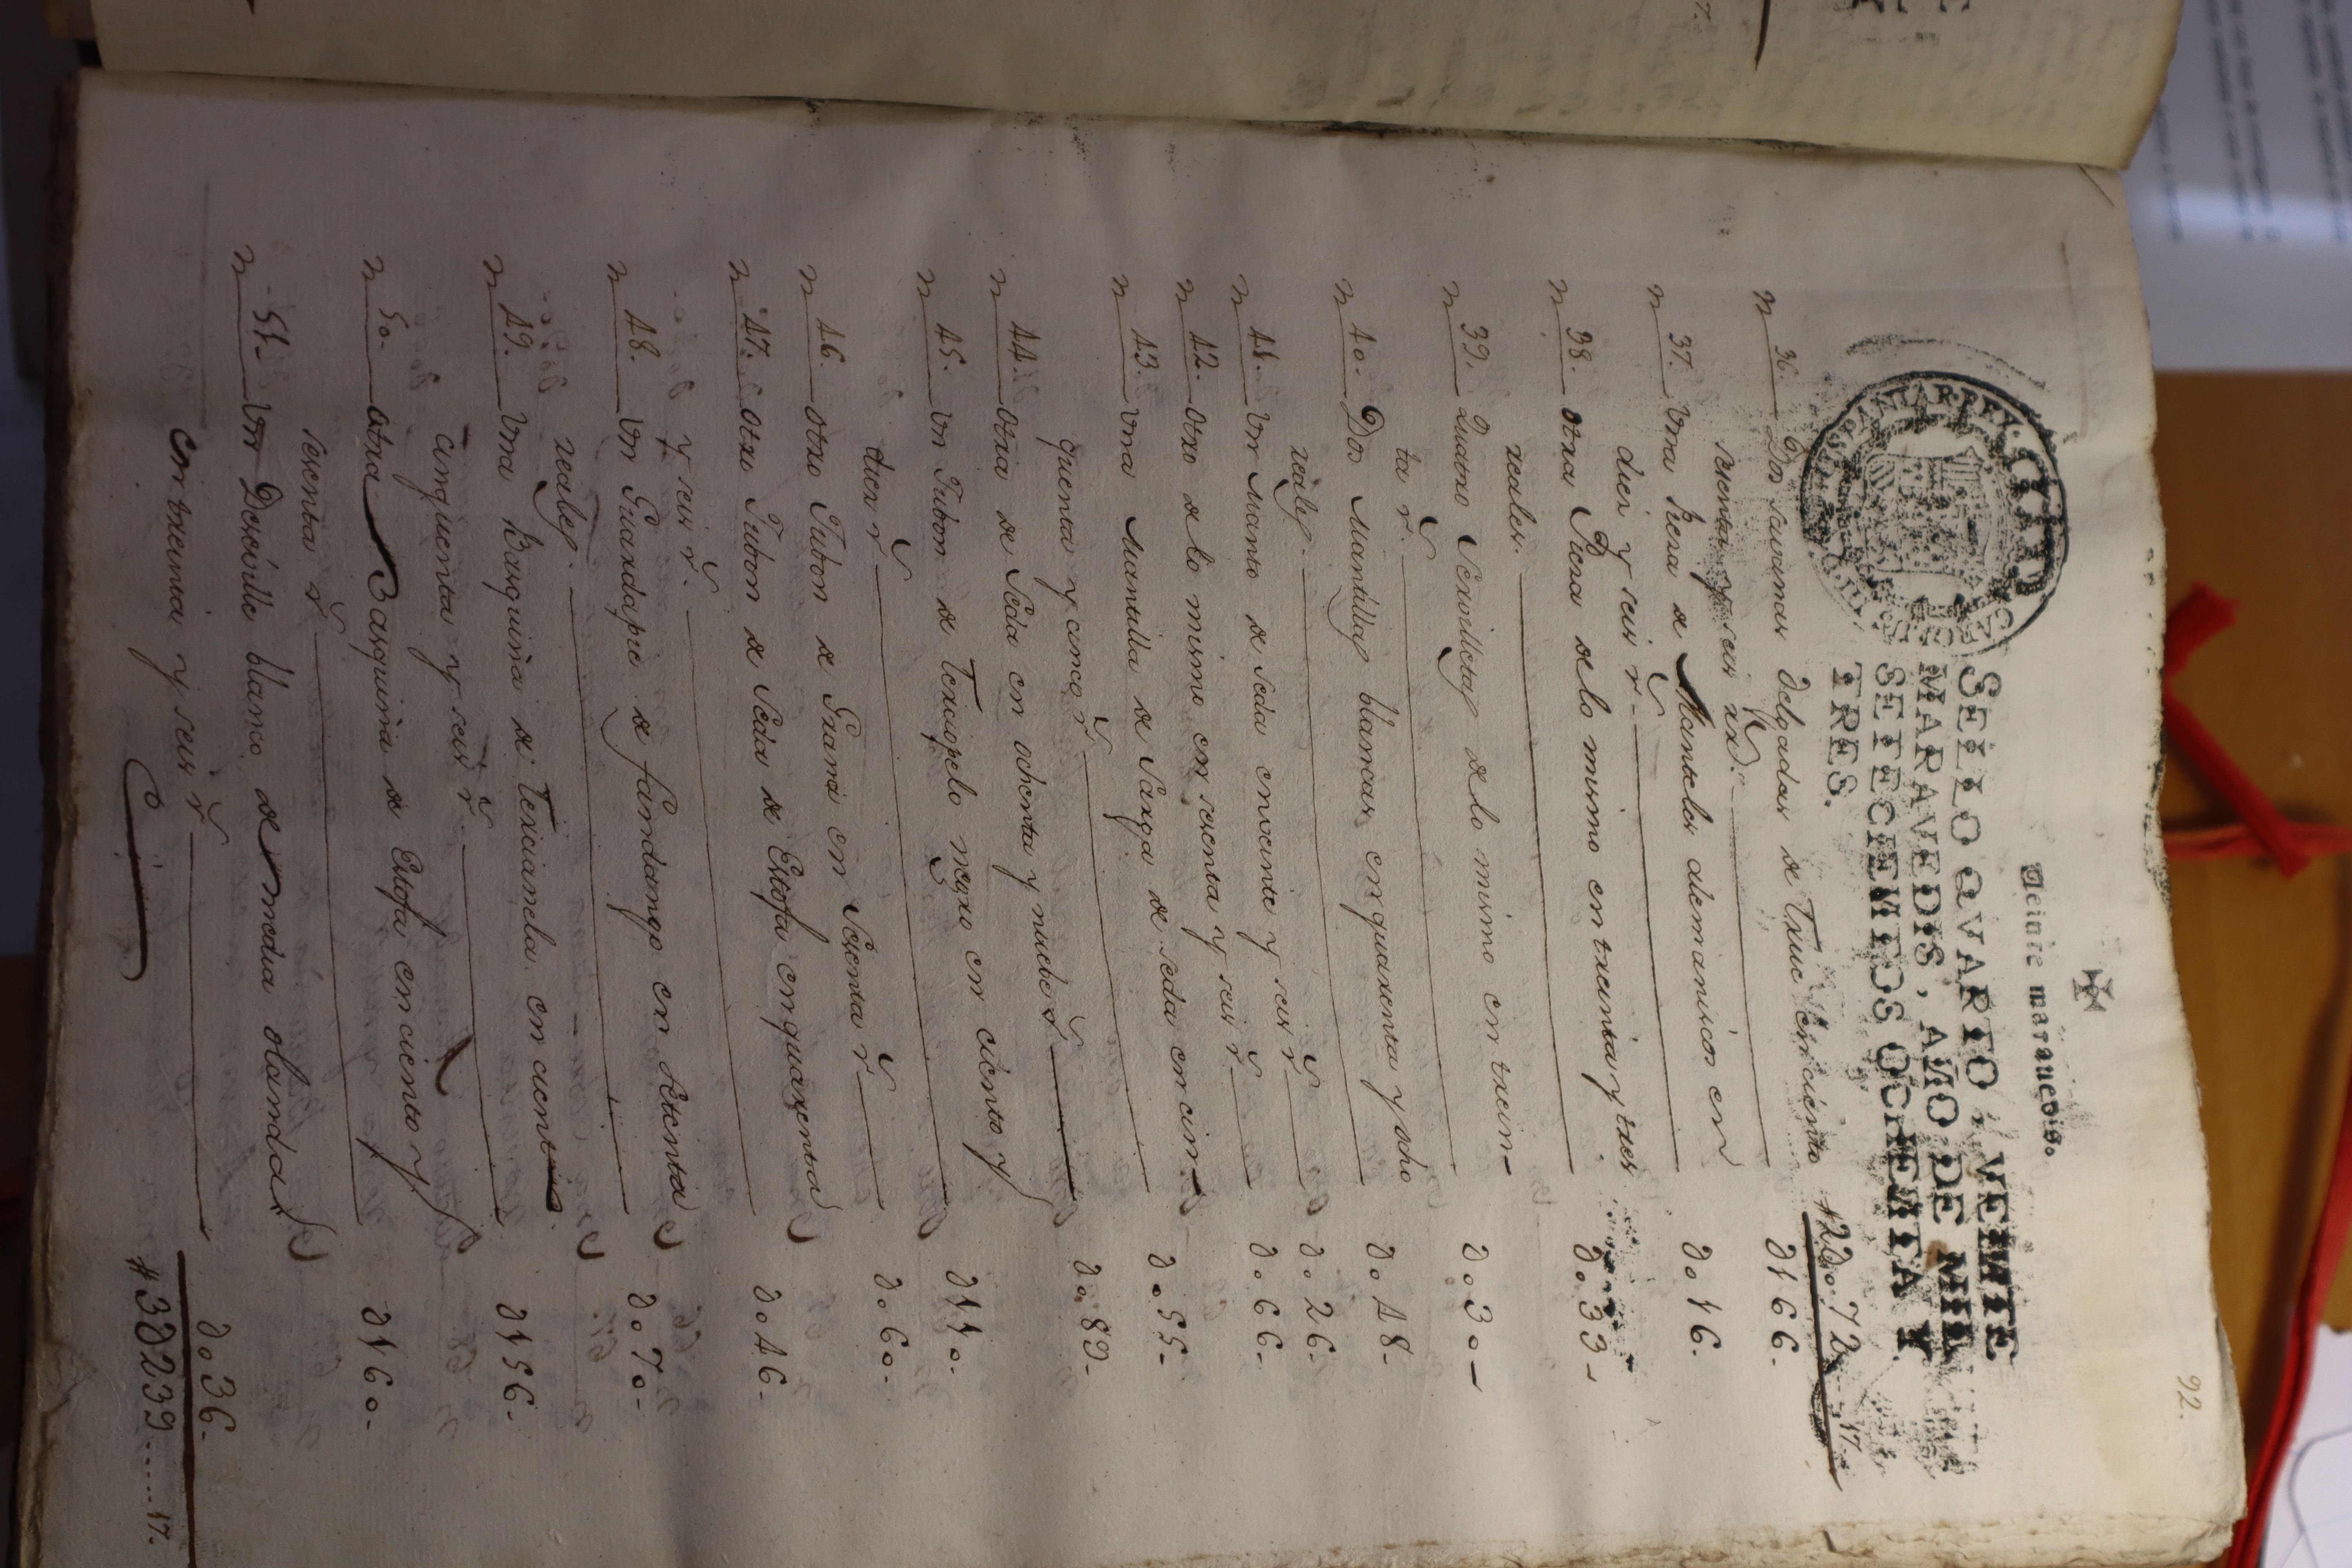 92.
Veinte marauedis.
SELLO QVARTO, VEINTE
MARAVEDIS, AÑO DE MIL
SETECIENTOS OCHENTA Y
TRES.
HISPANIAR. REX
#2do72....17.
n 36. Dos savanas delgadas de Truc en ciento
sesenta y seis rr.s d166.
n 37. Vna Piesa de Manteles alemaniscos en
diez y seis r.s do16.
n 38. otra Piesa de lo mismo en treinta y tres
reales. do33-
n 39. Quatro Servilletas de lo mismo en trein-
ta r.s do3o-
n 4o. Dos Mantillas blancas en quarenta y ocho
reales. do48-
n 41. Vn Manto de seda en veinte y seis r.s do26-
n 42. otro de lo mismo en sesenta y seis r.s do66-
n 43. Vna Mantilla de Sarga de seda en cin-
quenta y cinco r.s do55-
n 44. otra de Seda en ochenta y nuebe r.s do89-
n 45. Vn Jubon de Terciopelo negro en ciento y
diez r.s d11o-
n 46. otro Jubon de Grana en Sesenta r.s do6o-
n 47. otro Jubon de Seda de Estofa en quarenta
y seis r.s do46-
n 48. Vn Guardapie de fandango en setenta
reales. do7o-
n 49. Vna Basquiña de Tercianela en ciento
cinquenta y seis r.s d156-
n 5o. otra Basquiña de Estofa en ciento y
sesenta r.s d16o-
n 51. Vn Desville blanco de media olanda
en treinta y seis r.s do36-
#3d239.....17.